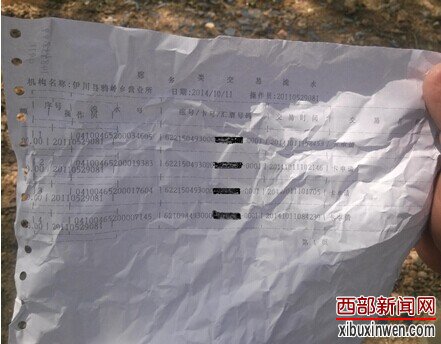 务 类 交 易 流 水
机构名称:伊川县鸦岭乡营业所 日期:2014/10/11 操作员:20110529081
序号 流 水 号 账号/卡号/汇票号码 交易时间 交易
操作员
1 04100465200034605 62215049300 0001
.00 20110529081
04100465200019383 62215049300 0001 20141011102146 卡申请
.00 20110529081
04100465200017604 62215049300 0001 20141011101705 卡申请
.00 20110529081
4 04100465200007145 62109943000 0001 20141011084230
.00 20110529081
西部新闻网
xibuxinwen.com